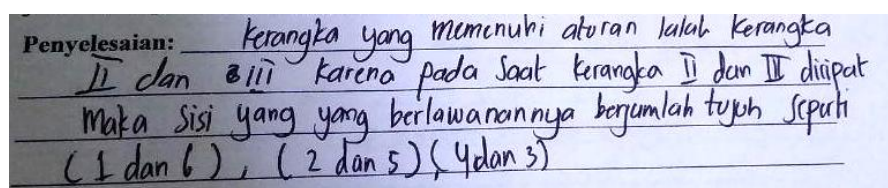 Penyelesaian: kerangka yang memenuhi aturan lalah kerangka
II dan iii karena pada saat kerangka II dan III dilipat
maka sisi yang yang berlawanannya berjumlah tujuh seperti
(1 dan 6), (2 dan 5) (4 dan 3)